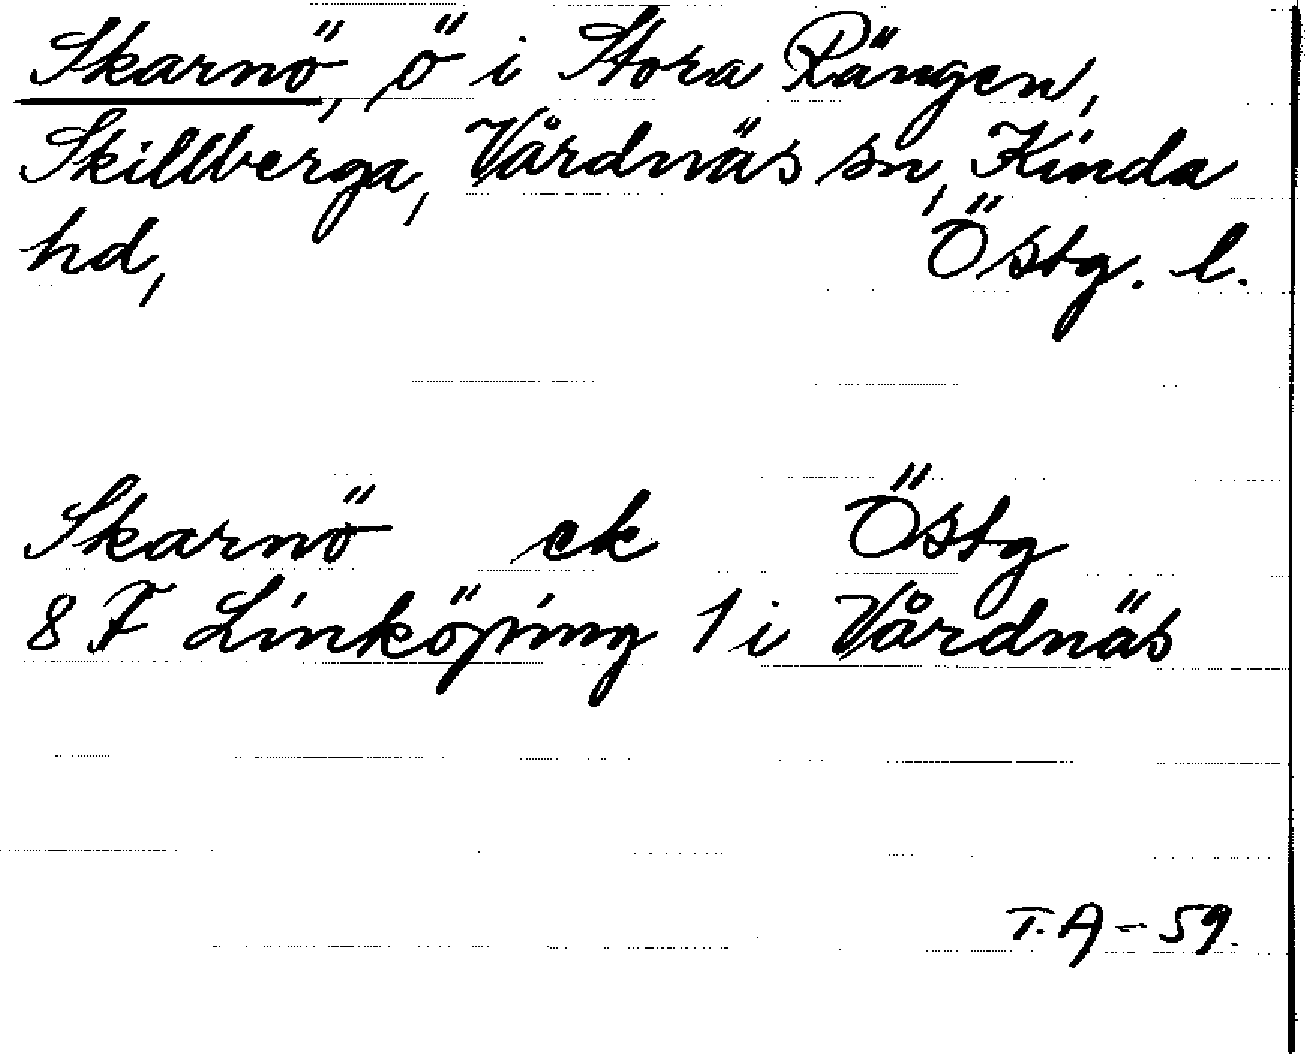 Skarnö, ö i Stora Rängen,
Skillberga, Vårdnäs sn, Kinda
hd, Östg. l.
Skarnö ek Östg
8 F Linköping 1 i Vårdnäs
T. A - 59.